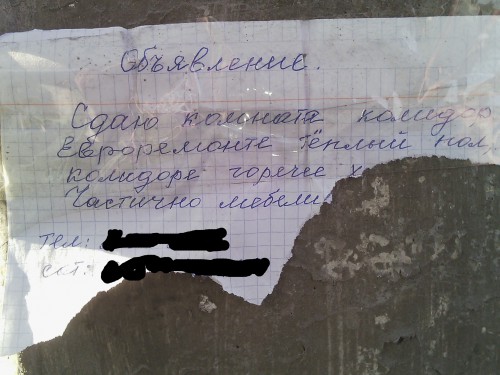 Объявление.
Сдаю комната колидор
Евроремонте тёплый пол,
колидоре горече х
Частично мебели
тел:
сот: